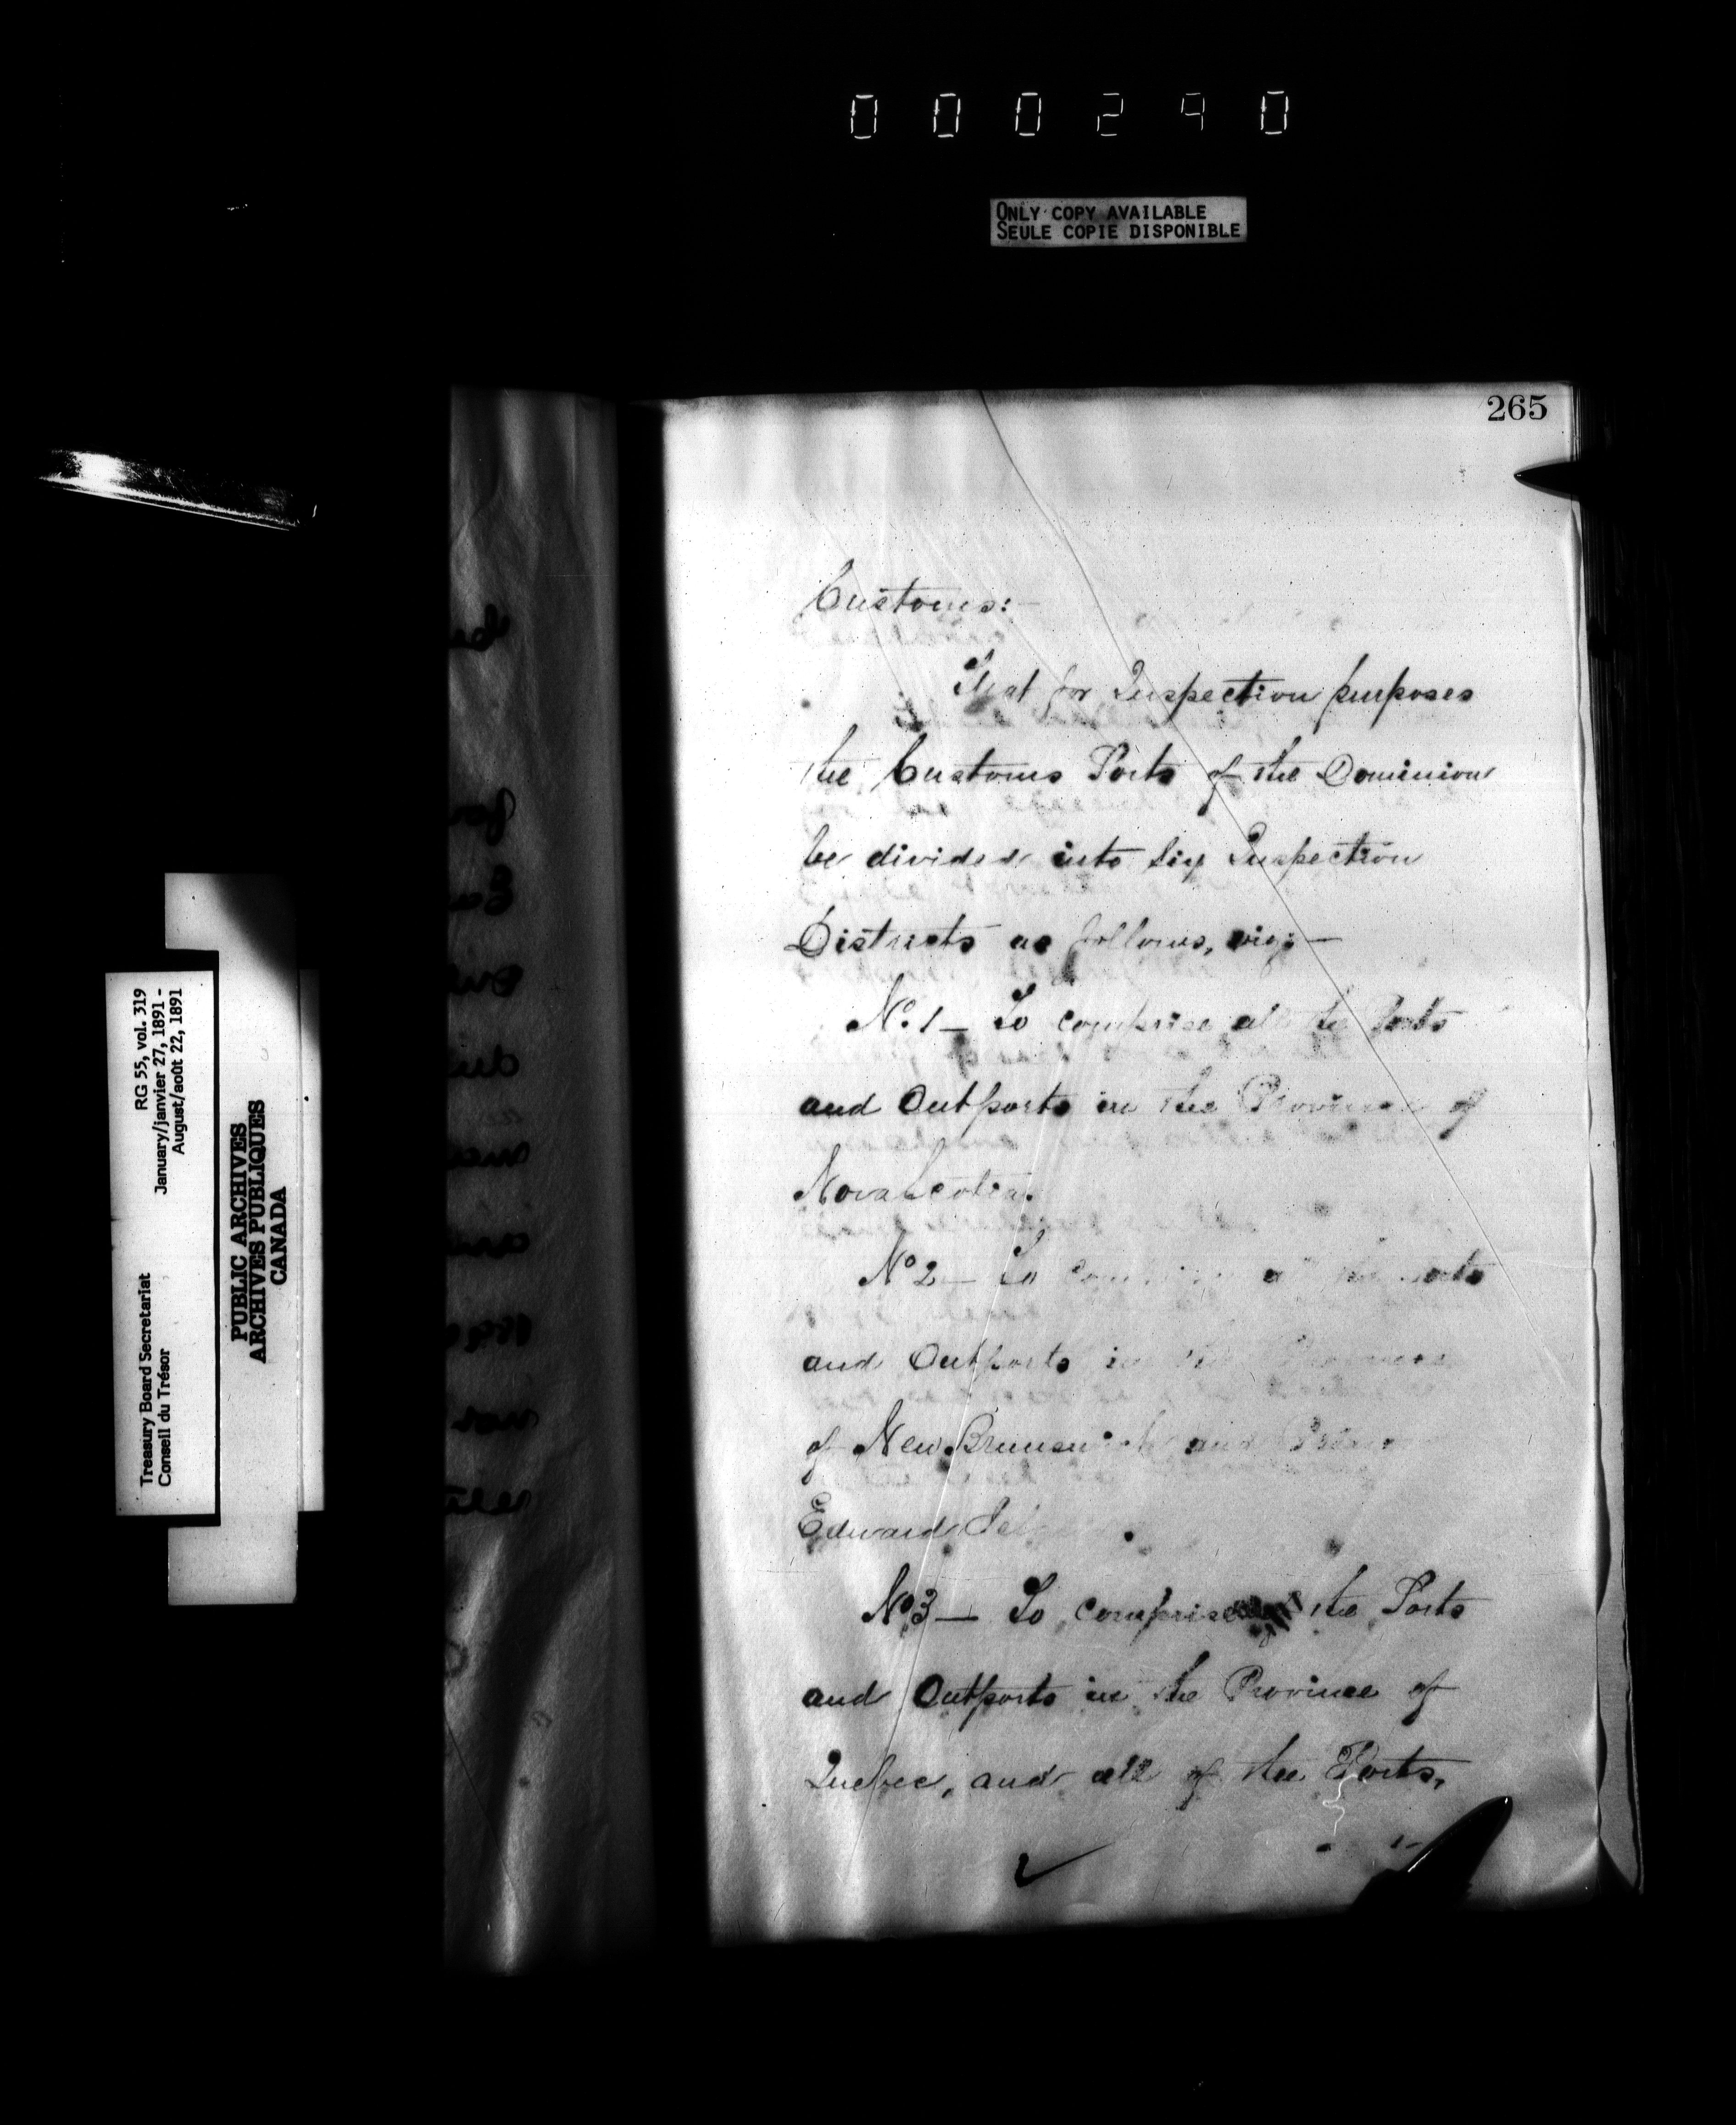 000290
ONLY COPY AVAILABLE
SEULE COPIE DISPONIBLE
265
RG 55, vol. 319
January/janvier 27, 1891 -
August/août 22, 1891
Treasury Board Secretariat
Conseil du Trésor
PUBLIC ARCHIVES
ARCHIVES PUBLIQUES
CANADA
Customs:-
That for Inspection purposes
the Customs Ports of the Dominion
be divided into six Inspection
Districts as follows, viz:-
No. 1 - To comprise all the Ports
and Outports in the Province of
Nova Scotia.
No 2 - To comprise all the Ports
and Outports in the
of New Brunswick and Prince
Edward
No 3 - To comprise the Ports
and Outports in the Province of
Quebec, and all of the Ports,